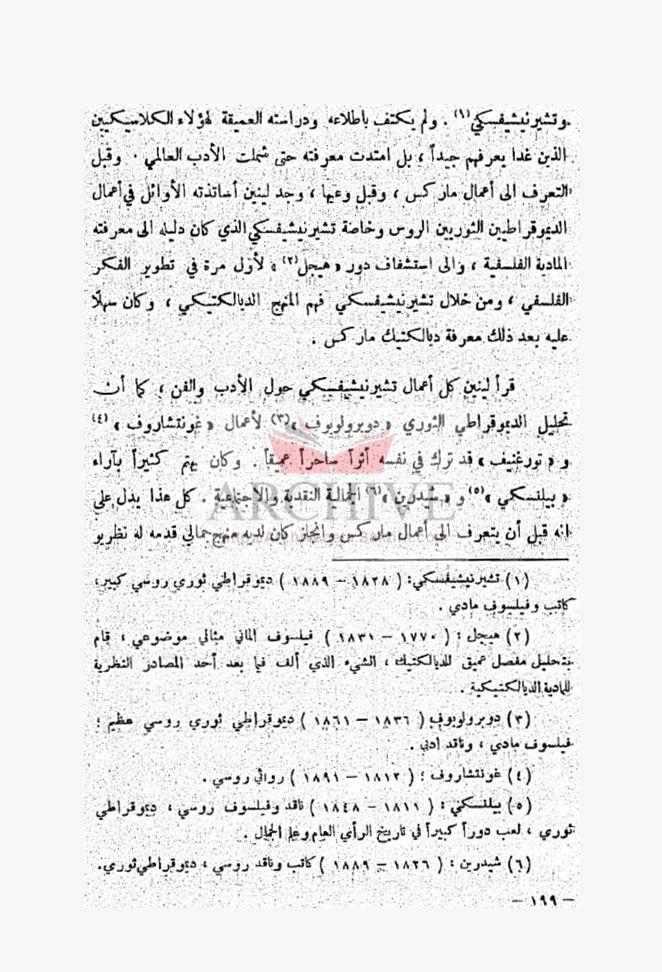 وتشيرنيشيفسكي(١) . ولم يكتف باطلاعه ودراسته العميقة لهؤلاء الكلاسيكيين
الذين غدا يعرفهم جيداً ، بل امتدت معرفته حتى شملت الأدب العالمي . وقبل
التعرف الى أعمال ماركس ، وقبل وعيها ، وجد لينين أساتذته الأوائل في أعمال
الديموقراطيين الثوريين الروس وخاصة تشيرنيشيفسكي الذي كان دليله الى معرفته
المادية الفلسفية ، والى استشفاف دور « هيجل(٢) » لأول مرة في تطوير الفكر
الفلسفي ، ومن خلال تشيرنيشيفسكي فهم المنهج الديالكتيكي ، وكان سهلًا
عليه بعد ذلك معرفة ديالكتيك ماركس .
قرأ لينين كل أعمال تشيرنيشيفسكي حول الأدب والفن ، كما أن
تحليل الديموقراطي الثوري « دوبرولوبوف »(٣) لأعمال « غونتشاروف » (٤)
و « تورغنيف » قد ترك في نفسه أثراً ساحراً عميقاً . وكان يهتم كثيراً بآراء
« بيلنسكي »(٥) و « شيدرين »(٦) الجمالية النقدية والاجتماعية . كل هذا يدل على
انه قبل أن يتعرف الى أعمال ماركس وانجلز كان لديه منهج جمالي قدمه له نظريو
ARCHIVE
(١) تشيرنيشيفسكي: ( ١٨٢٨ – ١٨٨٩ ) ديموقراطي ثوري روسي كبير،
كاتب وفيلسوف مادي .
(٢) هيجل : ( ١٧٧٠ – ١٨٣١ ) فيلسوف الماني مثالي موضوعي ، قام
بتحليل مفصل عميق للديالكتيك ، الشيء الذي ألف فيما بعد أحد المصادر النظرية
للمادية الديالكتيكية .
(٣) دوبرولوبوف ( ١٨٣٦ – ١٨٦١ ) ديموقراطي ثوري روسي عظيم ؛
فيلسوف مادي ، وناقد ادبي .
(٤) غونتشاروف : ( ١٨١٢ – ١٨٩١ ) روائي روسي .
(٥) بيلنسكي : ( ١٨١١ – ١٨٤٨ ) ناقد وفيلسوف روسي ، ديموقراطي
ثوري ، لعب دوراً كبيراً في تاريخ الرأي العام وعلم الجمال .
(٦) شيدرين : ( ١٨٢٦ – ١٨٨٩ ) كاتب وناقد روسي ، ديموقراطي ثوري.
– ١٩٩ –